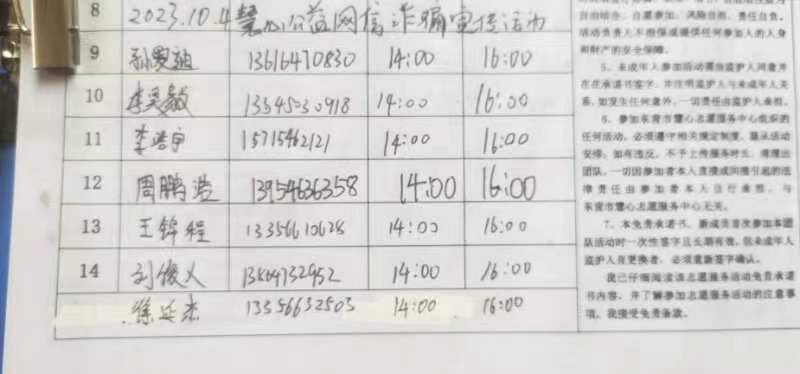 8 2023.10.4 慧心公益网信诈骗宣传活动
9 13616470830 14:00 16:00
10 14:00 16:00
11 李浩宇 15715462121 14:00 16:00
12 周鹏浩 13954636358 14:00 16:00
13 王锦程 14:00 16:00
14 刘俊义 14:00 16:00
徐延杰 13356632503 14:00 16:00
自由结合、自愿参加、风险自担、责任自负。
活动负责人不担保或提供任何参加人的人身
和财产的安全保障。
5、未成年人参加活动需由监护人同意并
在在承诺书签字，并注明监护人与未成年人关
系，如发生任何意外，一切责任由监护人承担。
6、参加东营市慧心志愿服务中心组织的
任何活动，必须遵守相关规定制度，服从活动
安排，如有违反，不予上传服务时长，清理出
团队。一切因参加者本人直接或间接引起的法
律责任由参加者本人自行承担，与
东营市慧心志愿服务中心无关。
7、本免责承诺书，新成员首次参加本团
队活动时一次性签字且长期有效，但未成年人
监护人有更换者，必须重新签字确认。
我已仔细阅读该志愿服务活动免责承诺
书内容，并了解参加志愿服务活动的注意事
项，我接受免责条款。